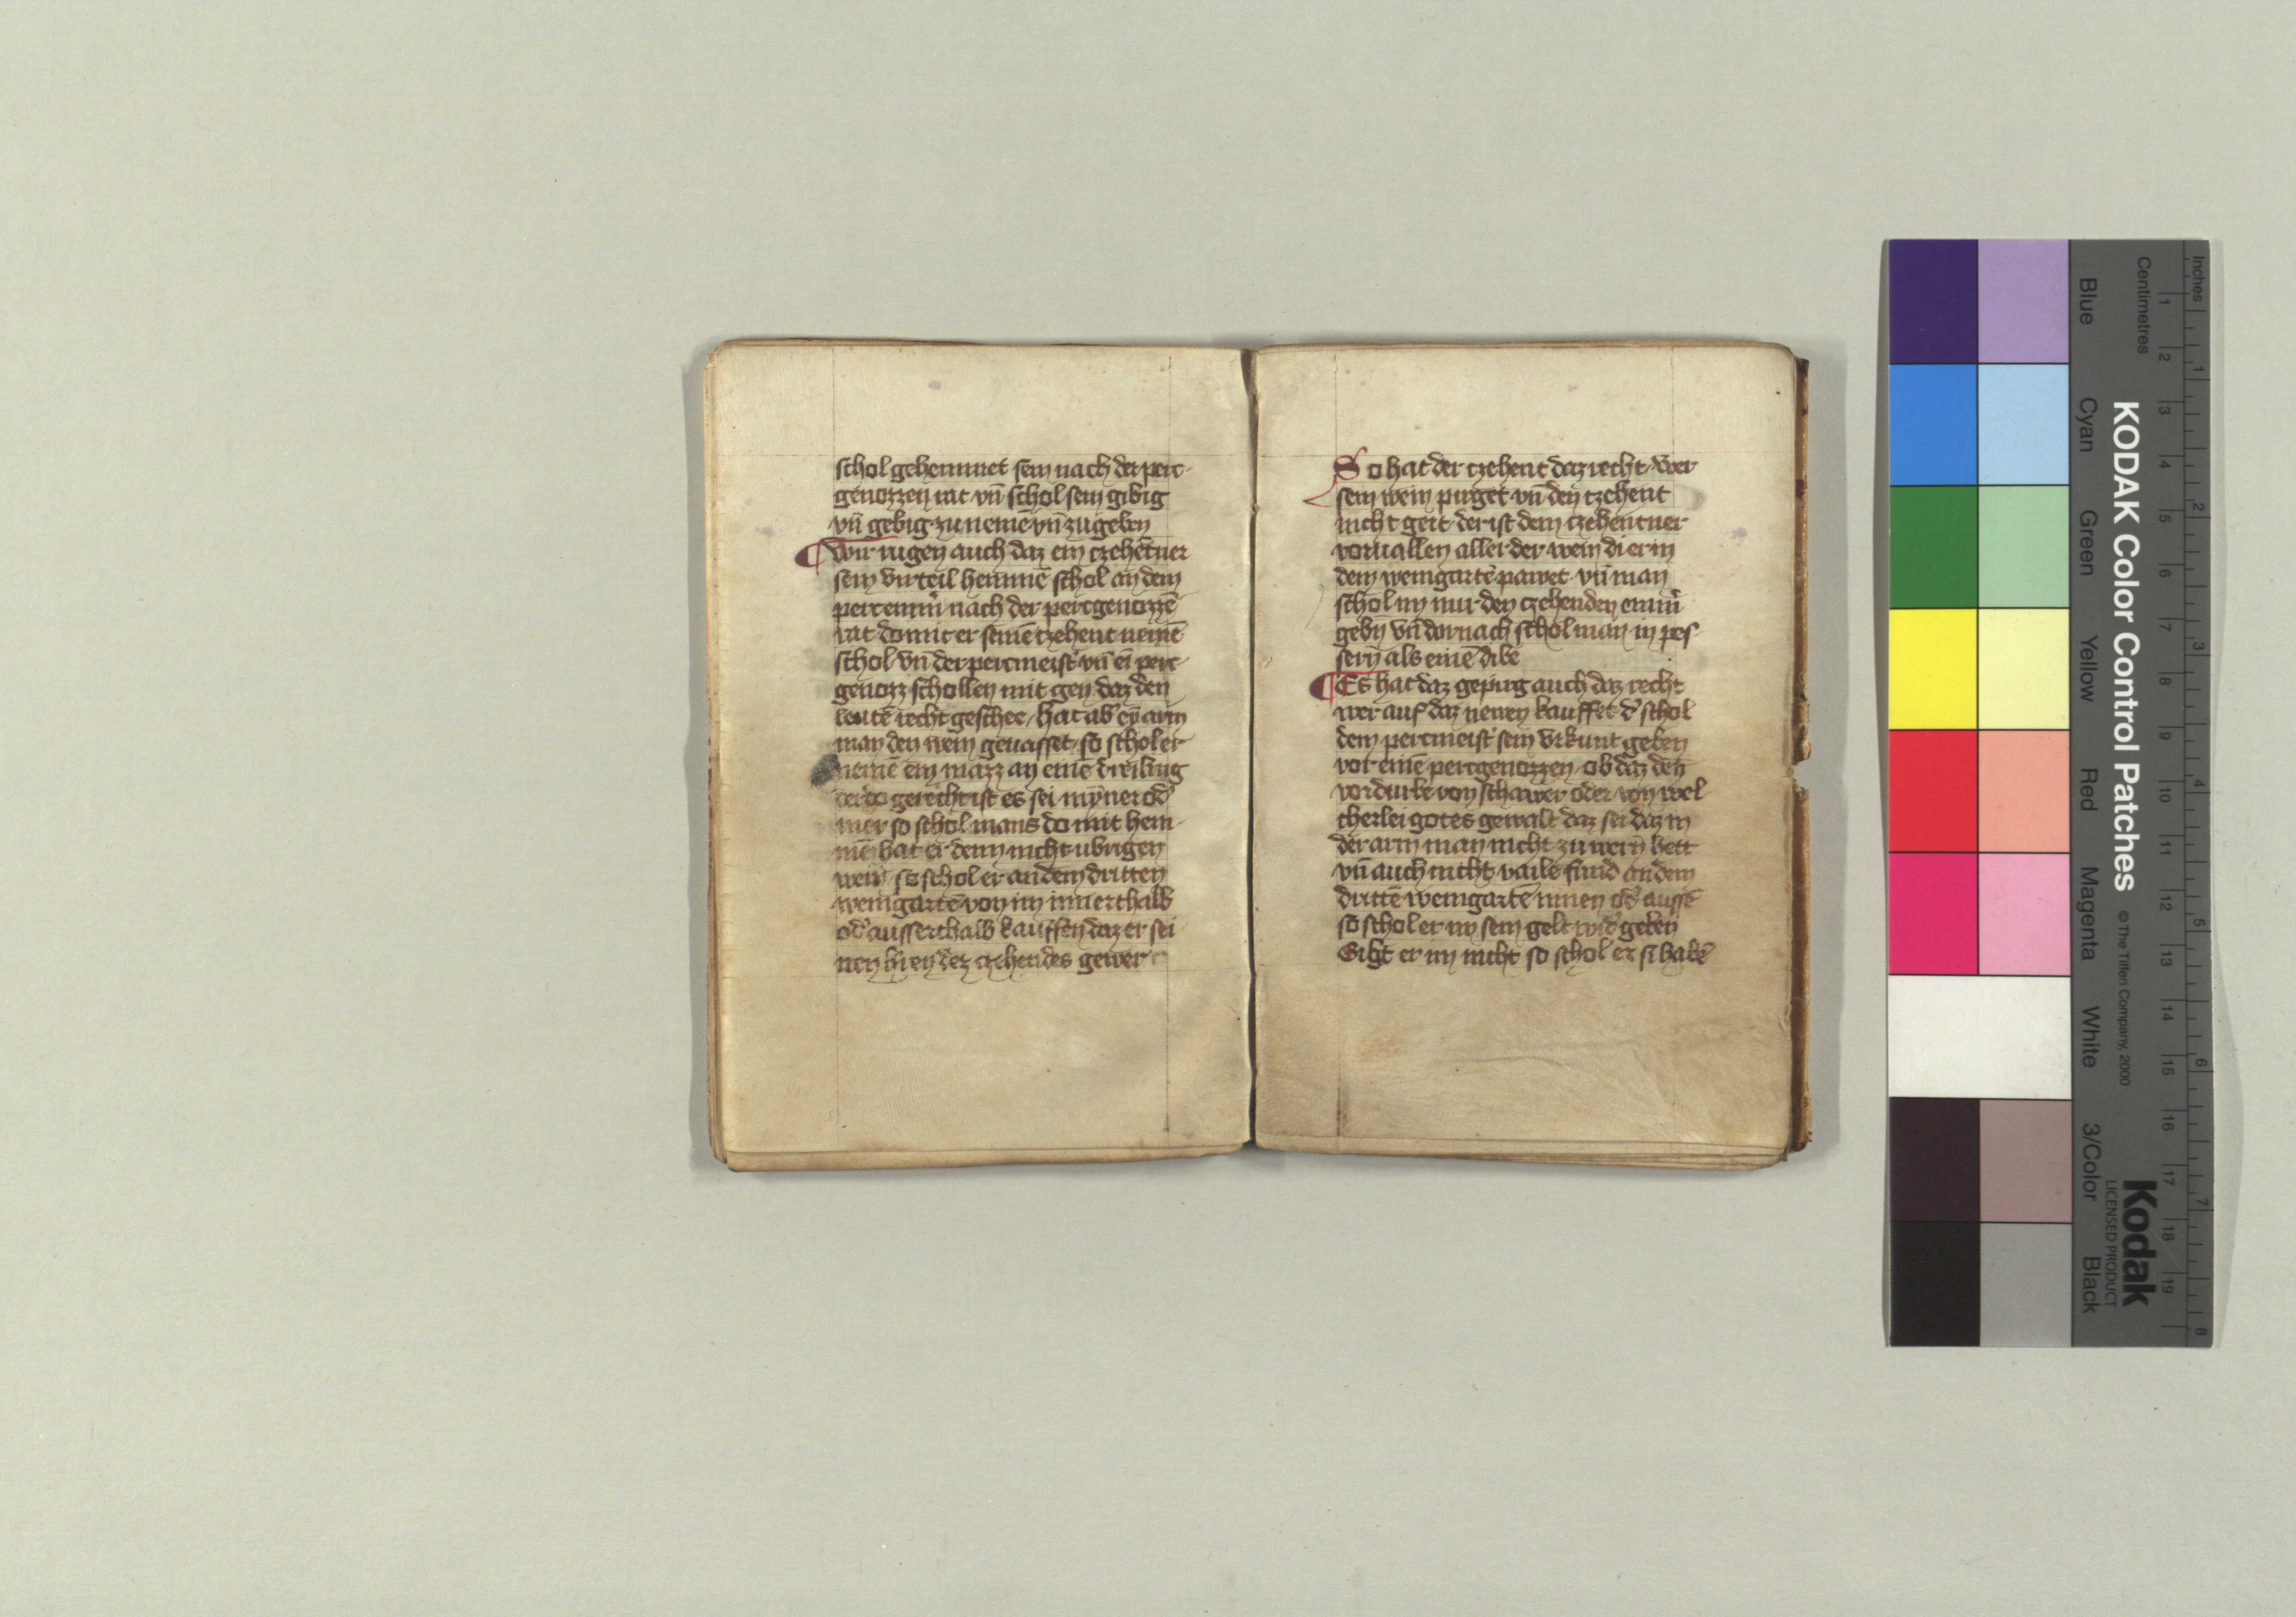 schol gehemmet sein nach der perc-
genozzen rat vn̄ schol sein gibig
vn̄ gebig zu nemē vn̄ zu geben
¶ Wir rugen auch daz ein czehētner
sein virteil hemmē schol an dem
percemm̉ nach der percgenozzē
rat domit er seinē czehent nemē
schol vn̄ der percmeist̉ vn̄ ei perc-
genozz schollen mit gen daz den
leutē recht geschee / hat ab̉ ey arm
man den wein geuasset / so schol er
nemē ein mazz an einē dreiling
der do gerecht ist es sei mynner od̉
mer so schol mans do mit hem-
mē hat er denn nicht ubrigen
wein so schol er an dem dritten
weingartē von im innerthalb
od̉ ausserthalb kauffen daz er sei
nen h̉ren dez czehendes gewer
So hat der czehent daz recht / wer
sein wein pirget vn̄ den czehent
nicht geit der ist dem czehentner
voruallen aller der wein di er in
dem weingartē pawet vn̄ man
schol im nur den czehenden emm̉
gebn̄ vn̄ darnach schol man in pes
sern̄ als einē dibe
¶ Es hat daz gepirg auch daz recht
wer auf daz newen kauffet d̉ schol
dem percmeist̉ sein vrkunt geben
vor einē percgenozzen ob daz den̄
vordurbe von schawer oder von wel
cherlei gotes gewalt daz sei daz in
der arm man nicht zu wern̄ hett
vn̄ auch nicht vaile fund an dem
drittē weingartē innen od̉ aussē
so schol er im sein gelt wid̉ geben
Gibt er im nicht so schol er si habē
Inches
Centimetres
1 2 3 4 5 6 7 8
1 2 3 4 5 6 7 8 9 10 11 12 13 14 15 16 17 18 19
KODAK Color Control Patches
© The Tiffen Company, 2000
Kodak
LICENSED PRODUCT
Blue
Cyan
Green
Yellow
Red
Magenta
White
3/Color
Black